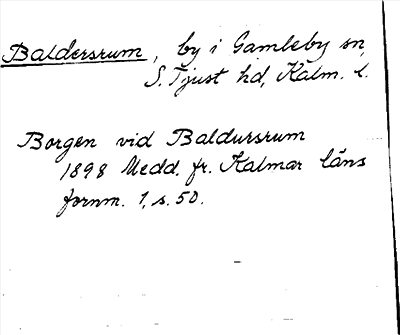 Baldersrum, by i Gamleby sn,
S. Tjust hd, Kalm. l.
Borgen vid Baldursrum
1898 Medd. fr. Kalmar läns
fornm. 1, s. 50.